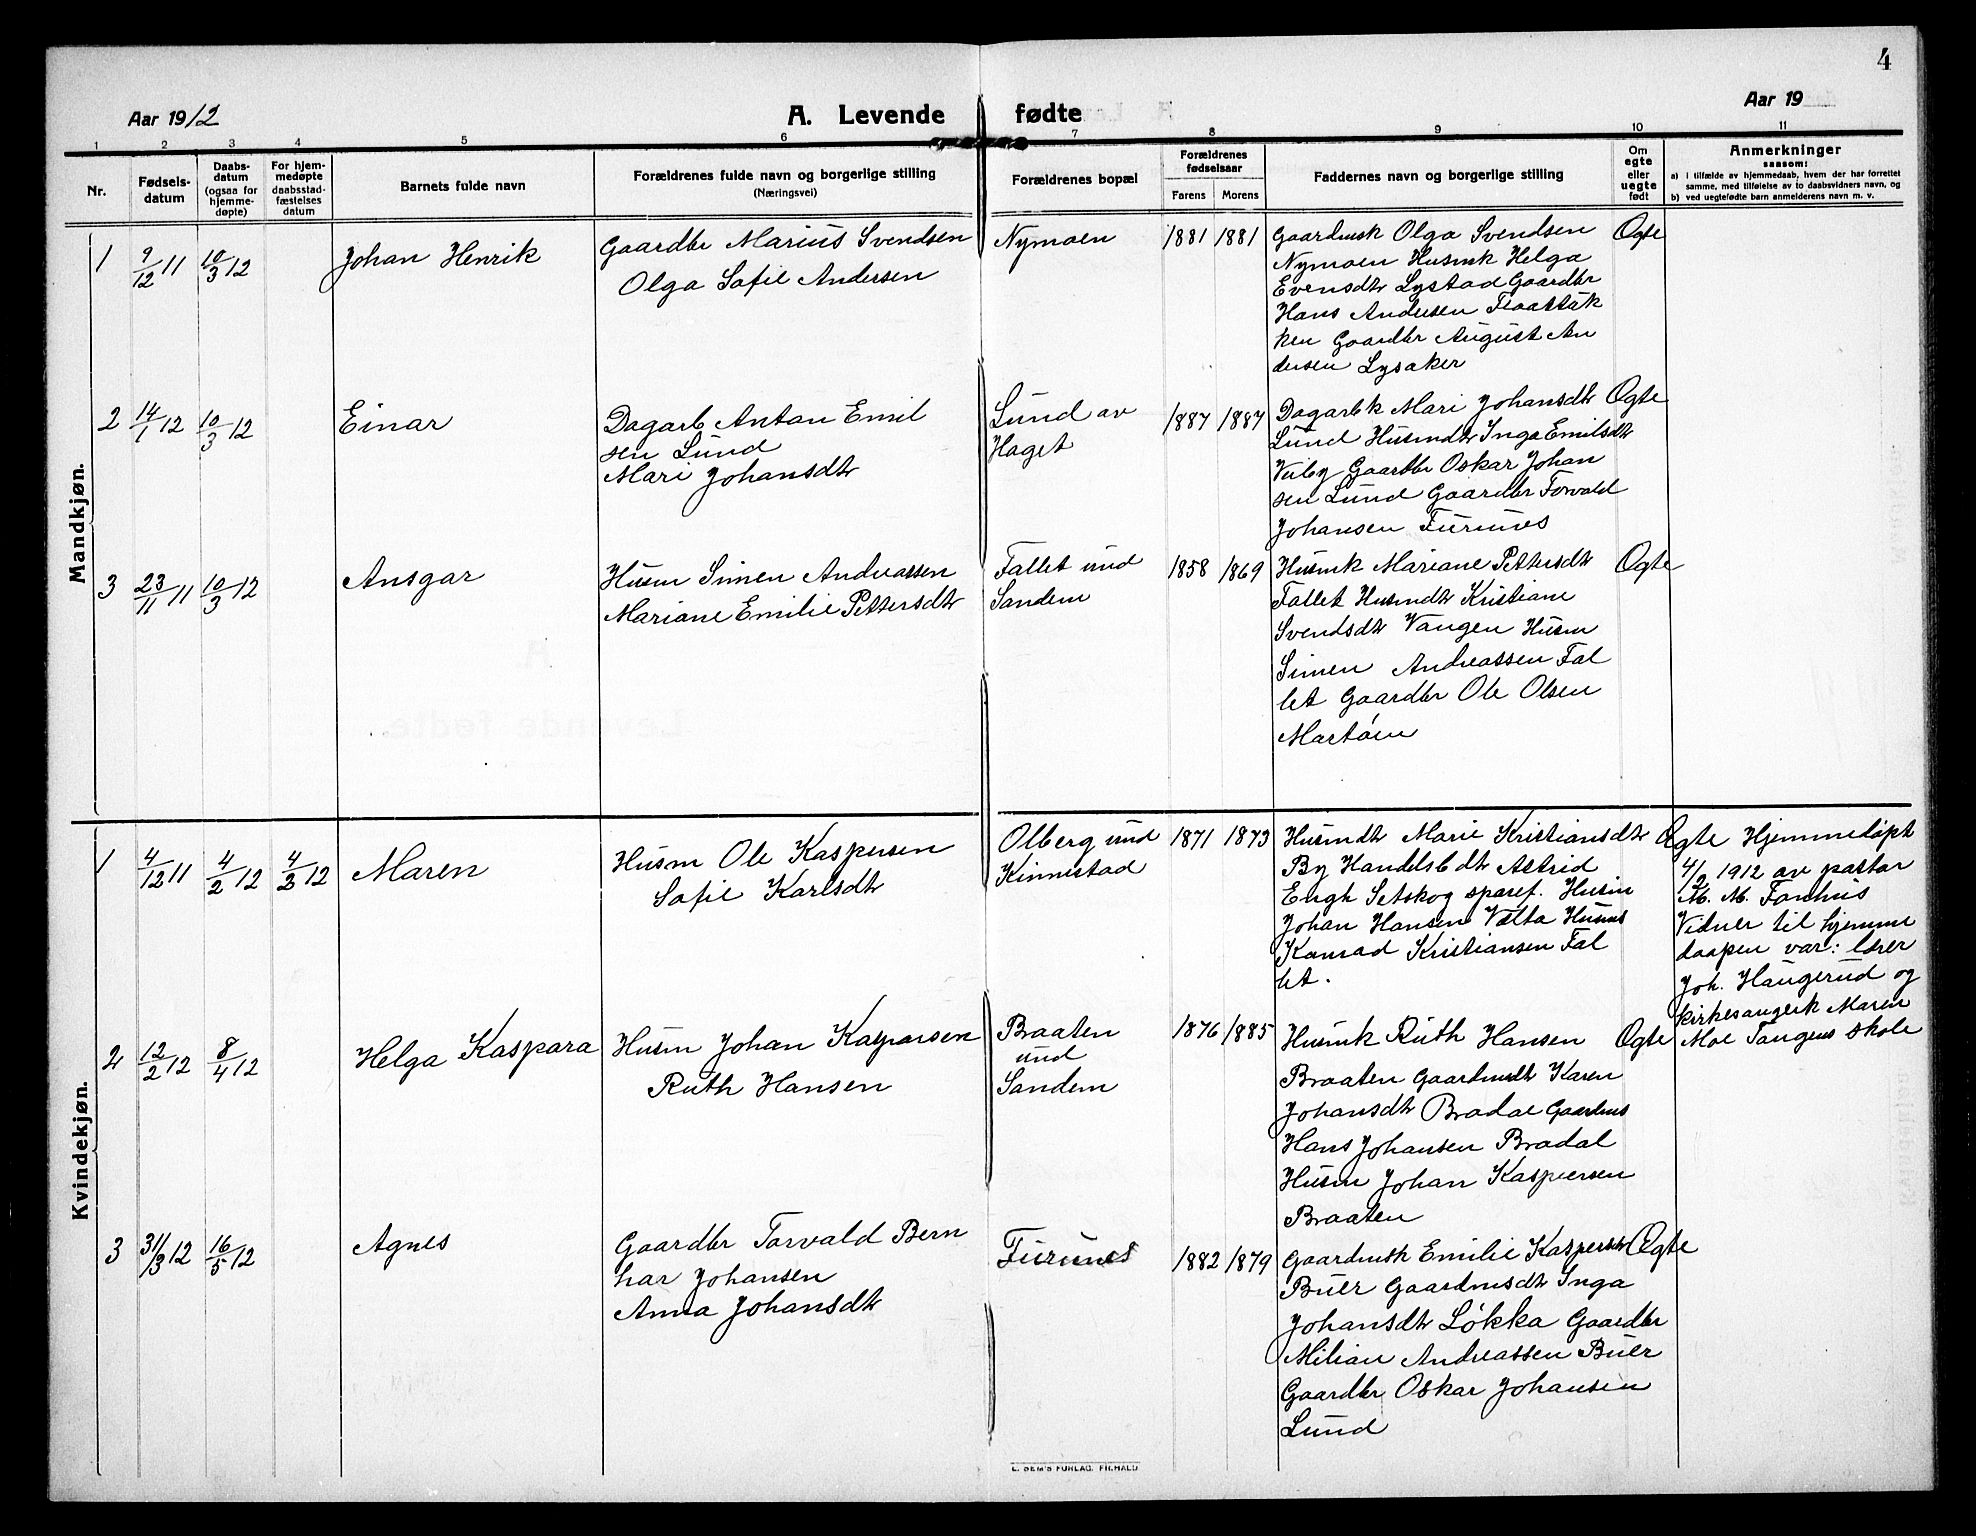 4
Aar 1912
A. Levende fødte
Aar 19
1 2 3 4 5 6 7 8 9 10 11
Nr.
Fødsels-
datum
Daabs-
datum
(ogsaa for
hjemme-
døpte)
For hjem-
medøpte
daabsstad-
fæstelses
datum
Barnets fulde navn
Forældrenes fulde navn og borgerlige stilling
(Næringsvei)
Forældrenes bopæl
Forældrenes
fødselsaar
Farens Morens
Faddernes navn og borgerlige stilling
Om
egte
eller
uegte
født
Anmerkninger
saasom:
a) i tilfælde av hjemmedaab, hvem der har forrettet
samme, med tilføielse av to daabsvidners navn, og
b) ved uegtefødte barn anmelderens navn m. v.
Mandkjøn.
1
9/12 11
10/3 12
Johan Henrik
Gaardbr Marius Svendsen
Olga Sofie Andersen
Nymoen
1881 1881
Gaardmsk Olga Svendsen
Nymoen Husmk Helga
Evensdtr Lystad Gaardbr
Hans Andersen Flaatbak
ken Gaardbr August An
dersen Lysaker
Ogte
2
14/1 12
10/3 12
Einar
Dagarb Anton Emil
sen Lund
Mari Johansdtr
Lund av
Haget
1887 1887
Dagarbk Mari Johansdtr
Lund Husmdtr Inga Emilsdtr
Viby Gaardbr Oskar Johan
sen Lund Gaardbr Torvald
Johansen Furunes
Ogte
3
23/11 11
10/3 12
Ansgar
Husm Simen Andreassen
Mariane Emilie Pettersdtr
Fallet und
Sandem
1858 1869
Husmk Mariane Pettersdtr
Fallet Husmdtr Kristiane
Svendsdtr Vangen Husm
Simen Andreassen Fal
let Gaardbr Ole Olsen
Martøien
Ogte
Kvindekjøn.
1
4/12 11
4/2 12
4/2 12
Maren
Husm Ole Kaspersen
Sofie Karlsdtr
Olberg und
Kinnestad
1871 1873
Husmdtr Marie Kristiansdtr
By Handelsbdtr Astrid
Engh Setskog sparef. Husm
Johan Hansen Vælta Husms
Konrad Kristiansen Fal
let.
Ogte
Hjemmedøpt
4/2 1912 av pastor
M. M. Fonhus
Vidner til hjemme
daapen var: lærer
Joh. Haugerud og
kirkesangerk Maren
Moe Tangens skole
2
12/2 12
8/4 12
Helga Kaspara
Husm Johan Kaspersen
Ruth Hansen
Braaten
und
Sandem
1876 1885
Husmk Ruth Hansen
Braaten Gaardmdtr Karen
Johansdtr Bradal Gaardms
Hans Johansen Bradal
Husm Johan Kaspersen
Braaten
Ogte
3
31/3 12
16/5 12
Agnes
Gaardbr Torvald Bern
har Johansen
Anna Johansdtr
Furunes
1882 1879
Gaardmsk Emilie Kaspersdtr
Buer Gaardmsdtr Inga
Johansdtr Løkka Gaardbr
Milian Andreassen Buer
Gaardbr Oskar Johansen
Lund
Ogte
E. SEM'S FORLAG, FR.HALD